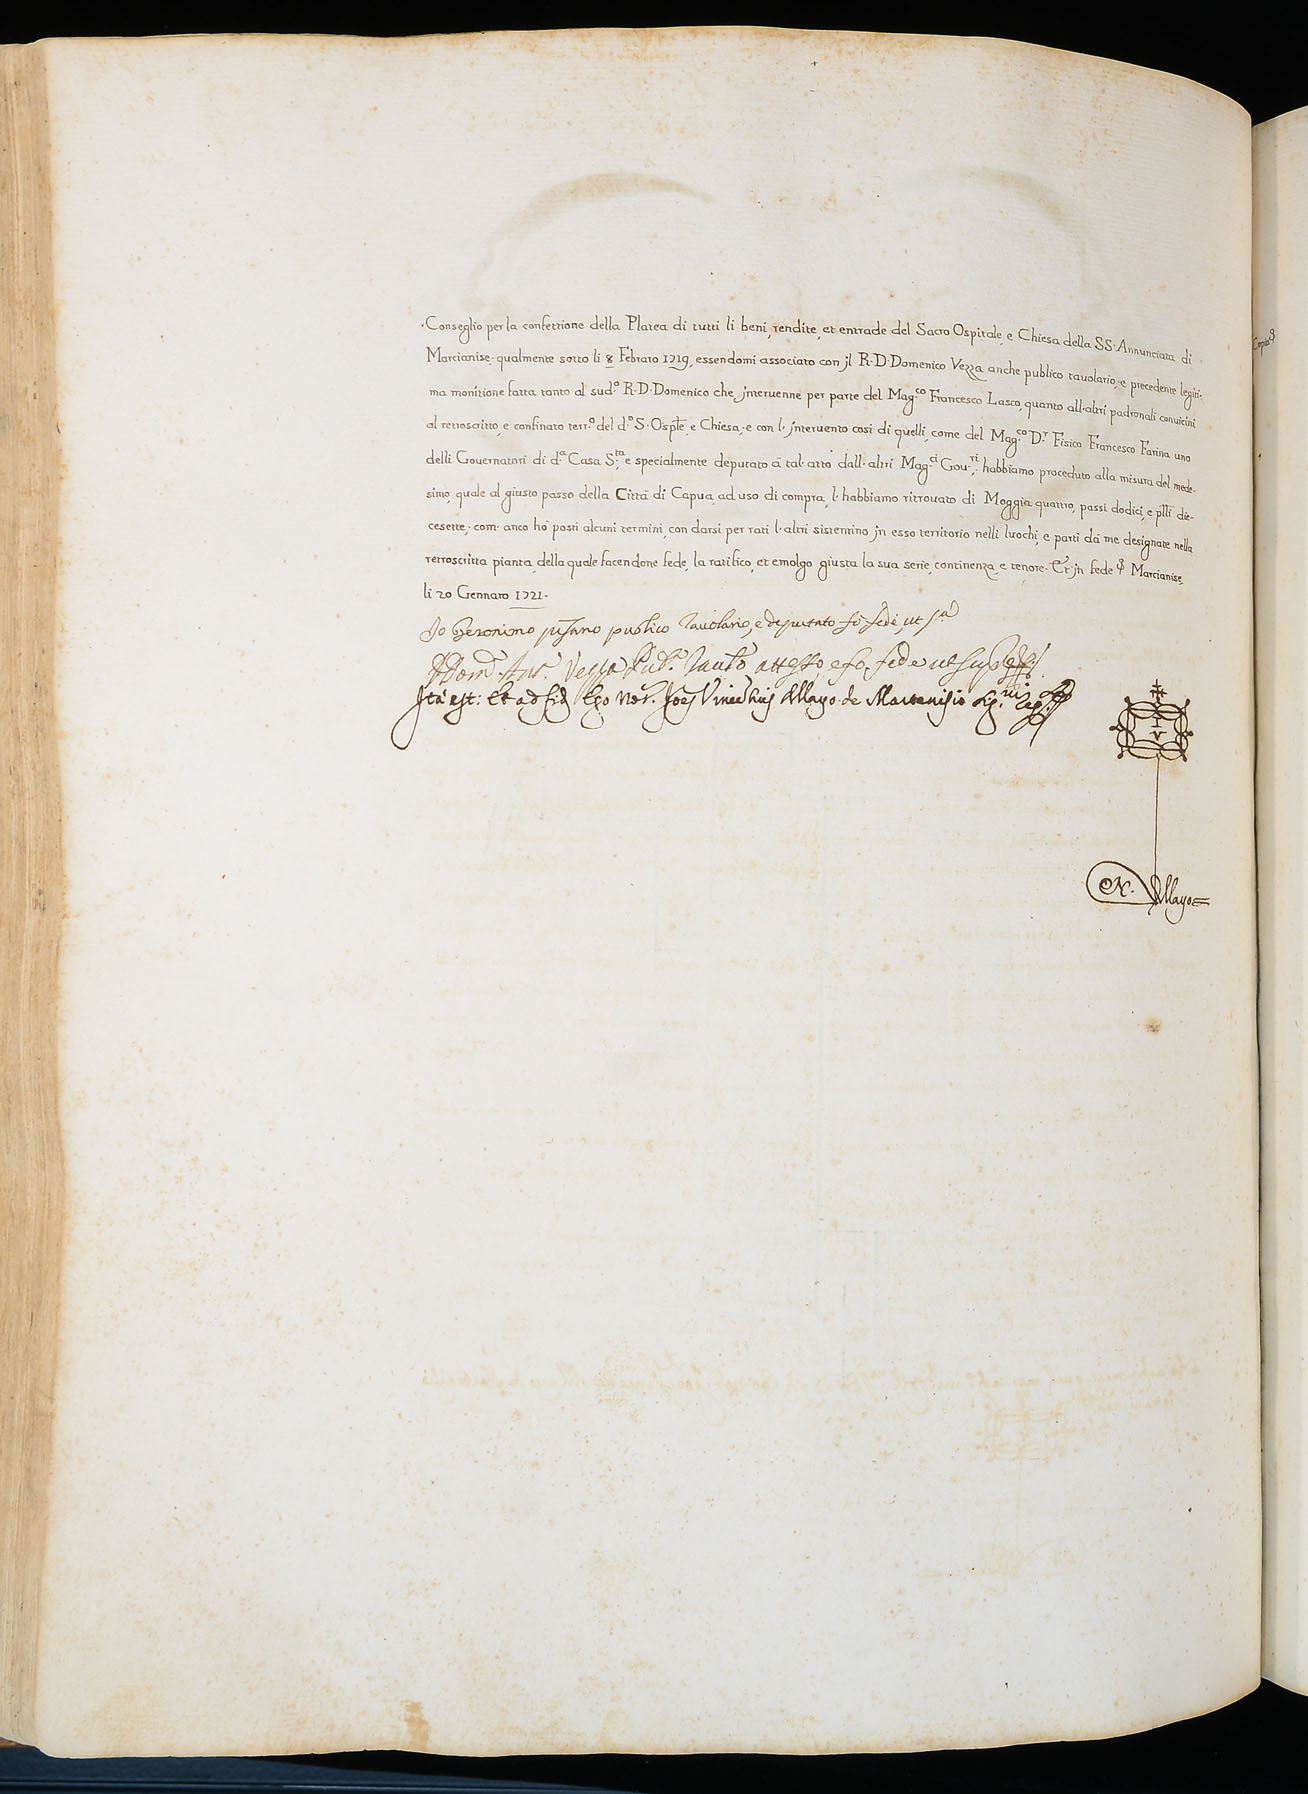 Conseglio per la confettione della Platea di tutti li beni, rendite, et entrade del Sacro Ospitale, e Chiesa della SS. Annunciata di
Marcianise, qualmente sotto li 8 Febraro 1719, essendomi associato con jl R. D. Domenico Vezza anche publico tavolario, e precedente legiti-
ma monitione fatta tanto al sud.º R. D. Domenico che jntervenne per parte del Mag.co Francesco Lasco, quanto all'altri padronali convicini
al retroscritto, e confinato terr.º del d.º S. Osp̃le, e Chiesa, e con l'jntervento così di quelli, come del Mag.co D.r Fisico Francesco Farina uno
delli Governatori di d.a Casa S.ta, e specialmente deputato à tal' atto dall'altri Mag.ci Gov.ri, habbiamo proceduto alla misura del mede-
simo, quale al giusto passo della Città di Capua, ad uso di compra, l'habbiamo ritrovato di Moggia quattro, passi dodici, e p̃lli die-
cesette, com'anco hò posti alcuni termini, con darsi per rati l'altri sistentino jn esso territorio nelli luochi, e parti dà me designate nella
retroscritta pianta, della quale facendone fede, la ratifico, et emolgo giusta la sua serie, continenza, e tenore. Et jn fede Marcianise
li 20 Gennaro 1721.
Io Geronimo pisano publico Tavolario, e deputato fò fede, ut s.a
D. Dom.co Ant.º Vezza Pub.º Tavol.º attesto, e fo fede ut supra
Ita est: Et ad fid. Ego Not. Joes Vincentius Mayo de Marcenisio
J
V
N. Mayo
Copia